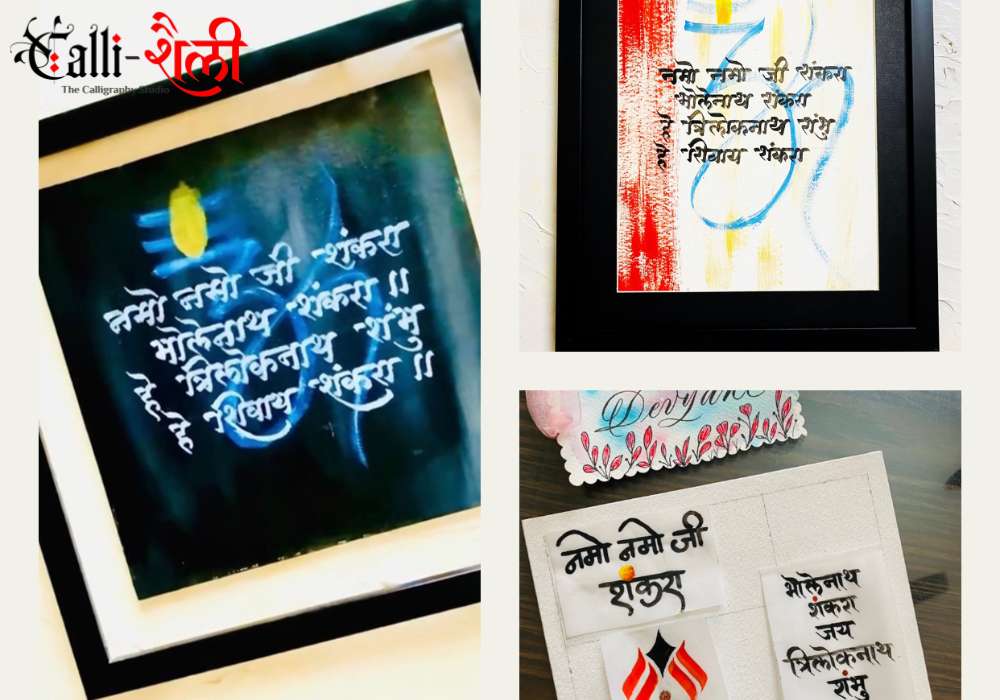 Calli-शैली
The Calligraphy Studio
नमो नमो जी शंकरा
भोलेनाथ शंकरा ॥
त्रिलोकनाथ शंभु
हे शिवाय शंकरा ॥
नमो नमो जी शंकरा
भोलेनाथ शंकरा
त्रिलोकनाथ शंभु
शिवाय शंकरा
नमो नमो जी
शंकरा
भोलेनाथ
शंकरा
जय
त्रिलोकनाथ
शंभु